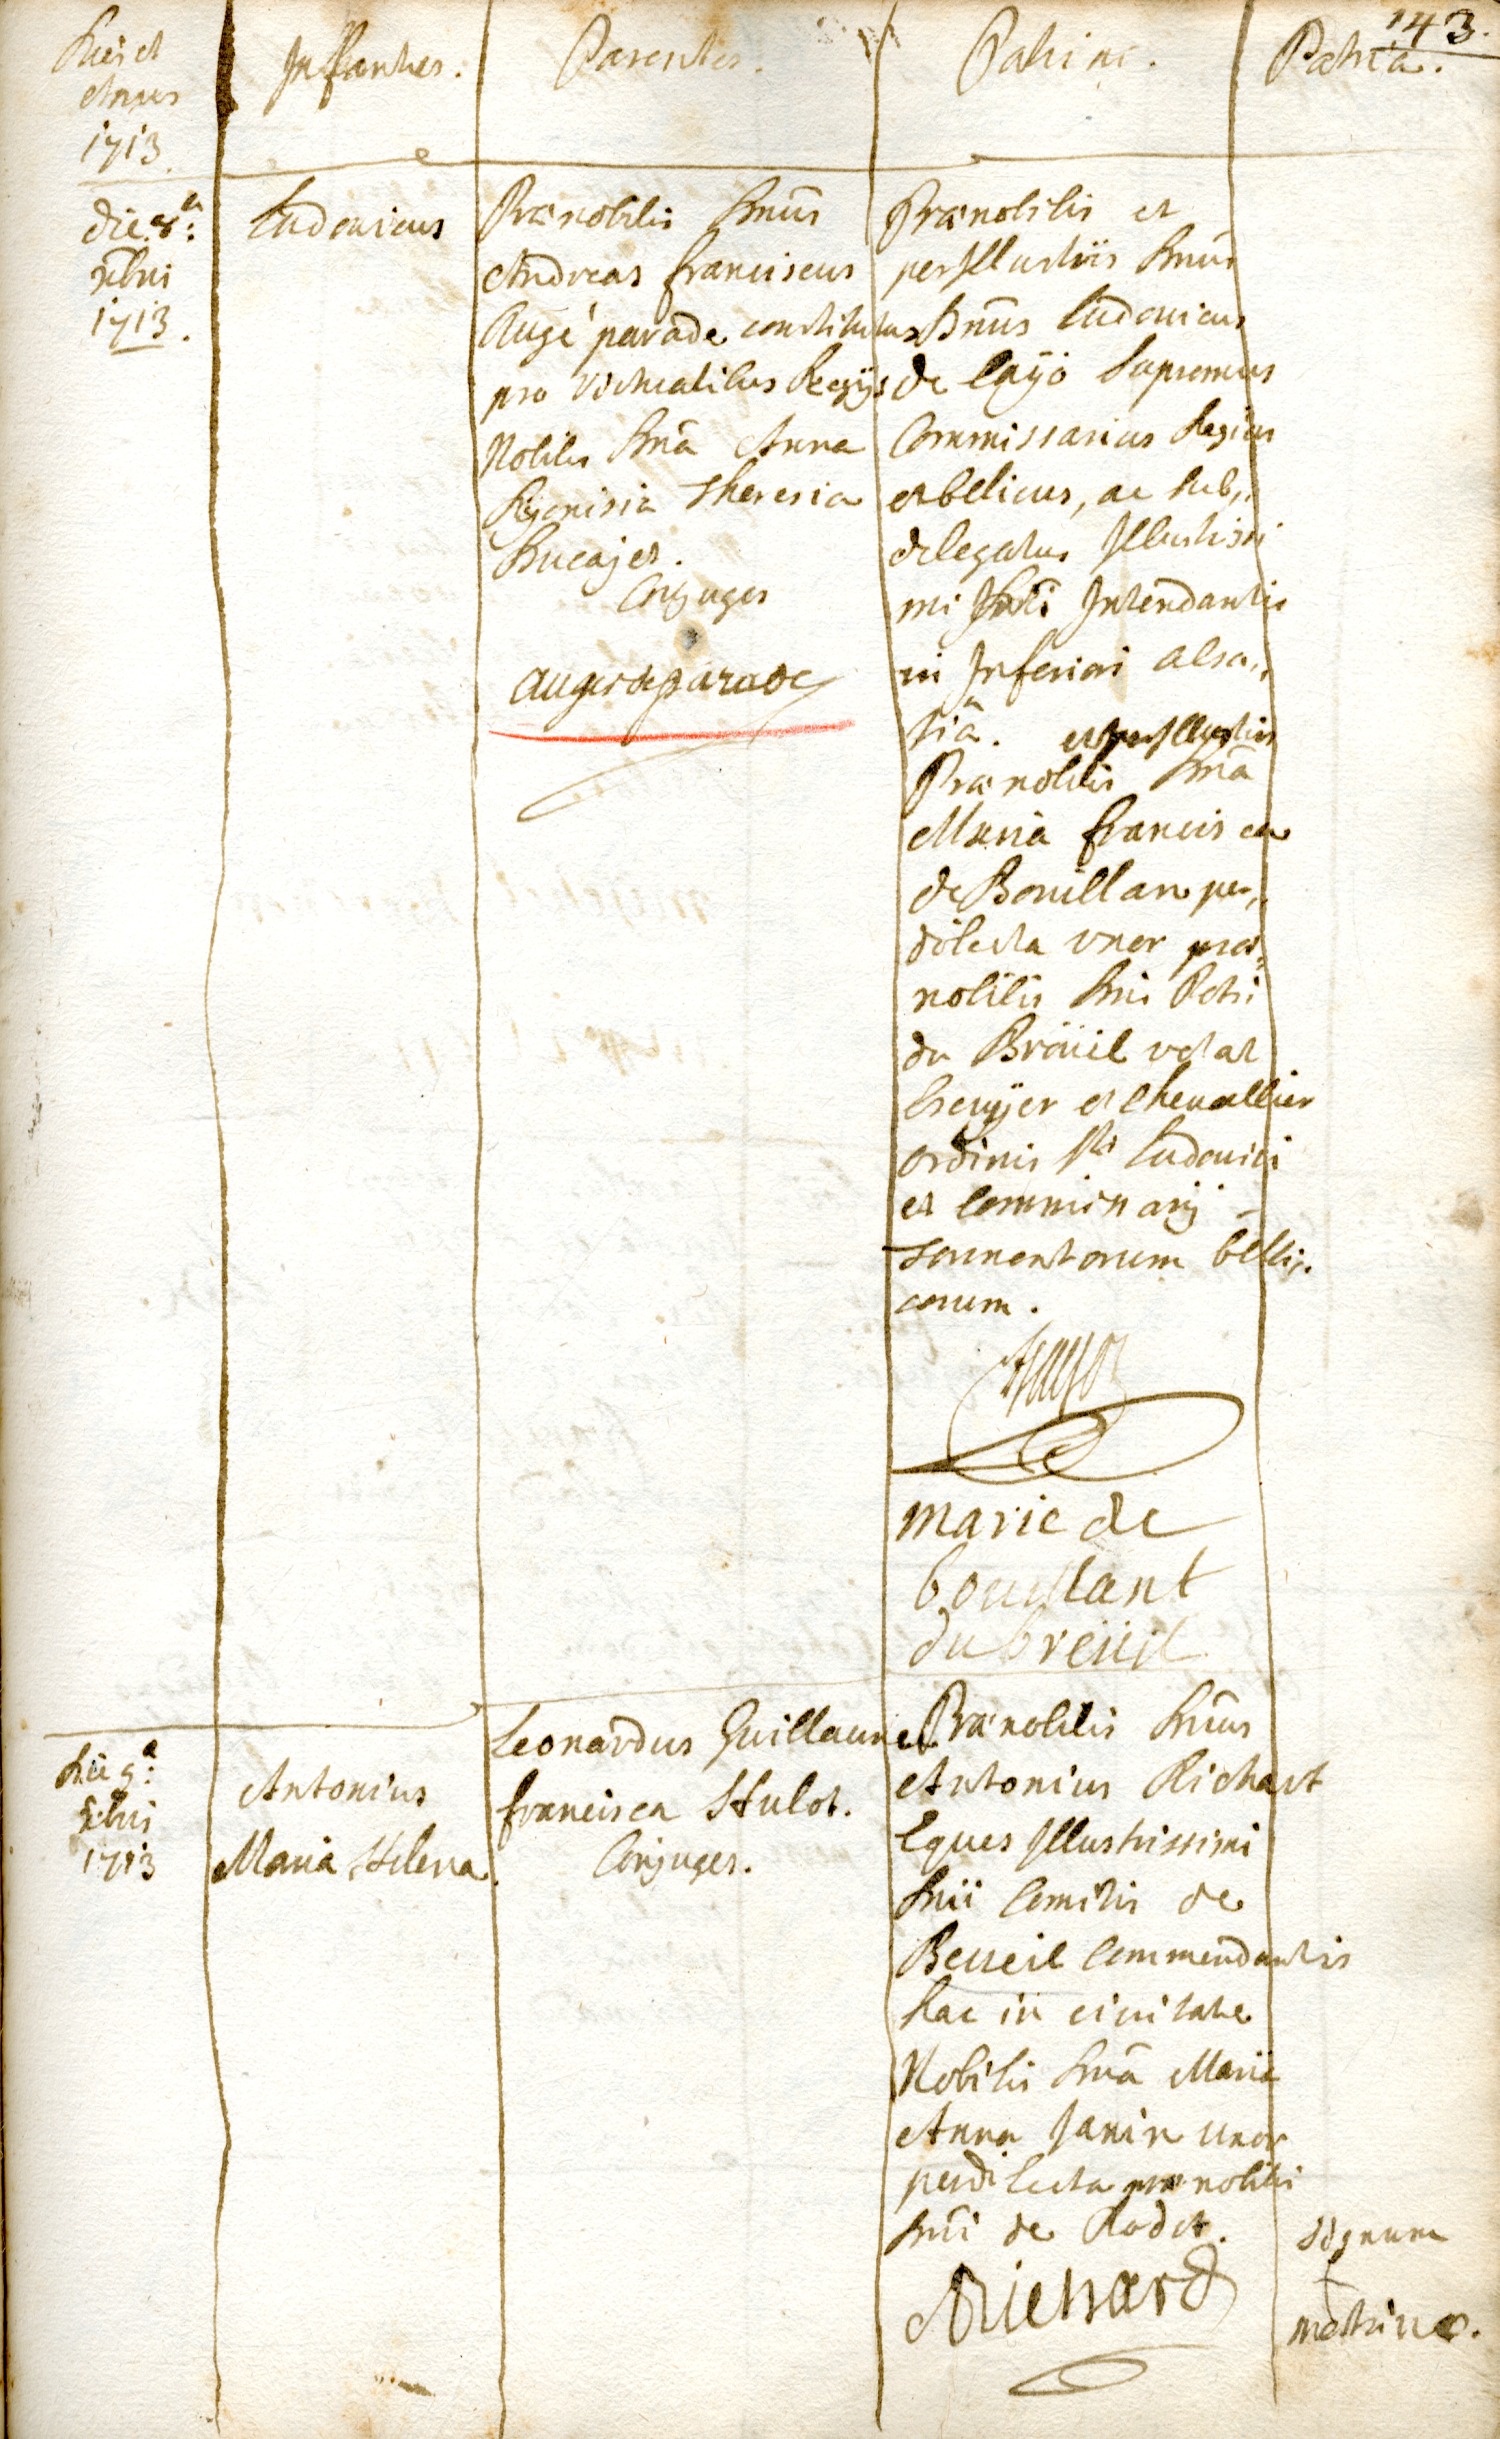 143.
Dies et
Annus
1713.
Infantes.
Parentes.
Patrini.
Patria.
die 8a:
xbris
1713.
Ludovicus
Prænobilis Dnūs
Andreas franciscus
Augé parade constitutus
pro victualibus Regijs
Nobilis Dnā Anna
Dionisia Theresia
Ducajet.
Conjuges
auger de parade
Prænobilis et
perillustris Dnūs
Dnūs Ludovicus
de Cayö Supremus
Commissarius Regius
et bellicus, ac sub,,
delegatus Illustrissi
mi Dnī Intendantis
in Inferiori Alsa,,
tiâ. et perillustris
Prænobilis Dnā
Maria francisca
de Bouillan per,,
dilecta uxor præ,,
nobilis Dni Petri
du Bröüil
et Chevallier
ordinis Sti Ludovici
et Commissarij
tormentorum belli,,
corum.
marie de
bouillant
du breüil
Die 9a:
xbris
1713
Antonius
Maria Helena.
Leonardus Guillaume
francisca Hulot.
Conjuges.
Prænobilis Dnūs
Antonius Richart
Eques Illustrissimi
Dnii Comitis de
Beueil Commendantis
hac in civitate
Nobilis Dnā Maria
Anna Janin uxor
perdilecta prænobilis
Dnī de Rodet.
ARichard
signum
+
matrinæ.